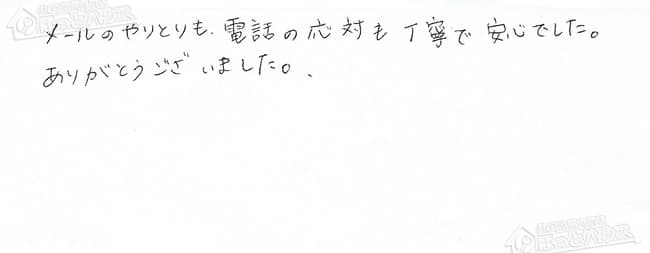 メールのやりとりも、電話の応対も丁寧で安心でした。
ありがとうございました。